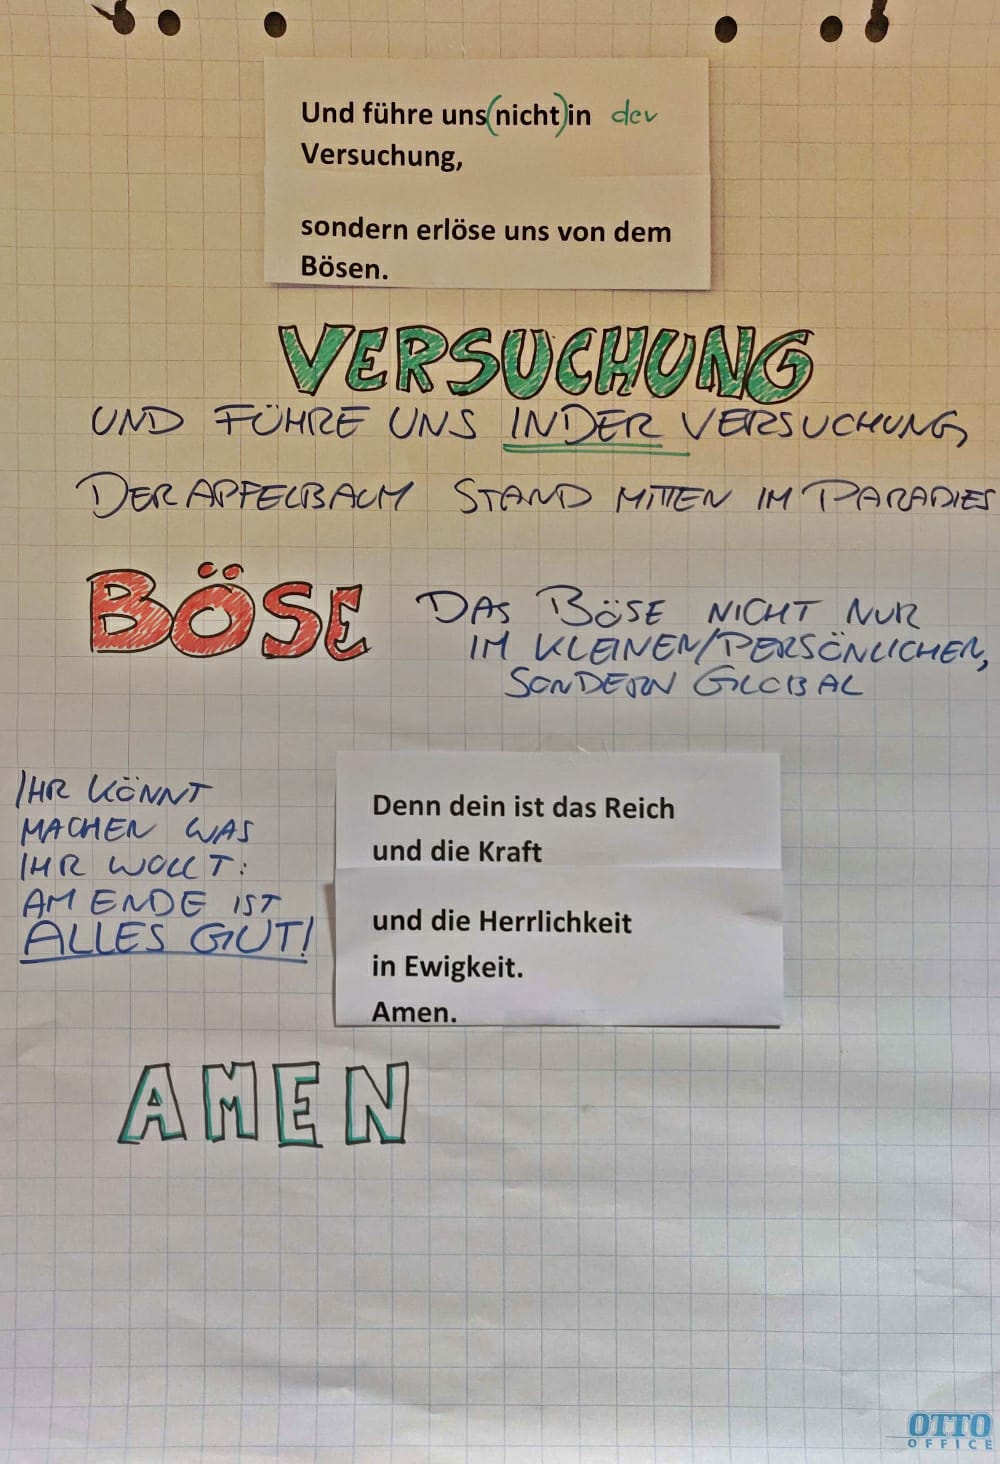 Und führe uns(nicht)in der
Versuchung,
sondern erlöse uns von dem
Bösen.
VERSUCHUNG
UND FÜHRE UNS IN DER VERSUCHUNG,
DER APFELBAUM STAND MITTEN IM PARADIES
BÖSE
DAS BÖSE NICHT NUR
IM KLEINEN/PERSÖNLICHEN,
SONDERN GLOBAL
IHR KÖNNT
MACHEN WAS
IHR WOLLT:
AM ENDE IST
ALLES GUT!
Denn dein ist das Reich
und die Kraft
und die Herrlichkeit
in Ewigkeit.
Amen.
AMEN
OTTO
OFFICE